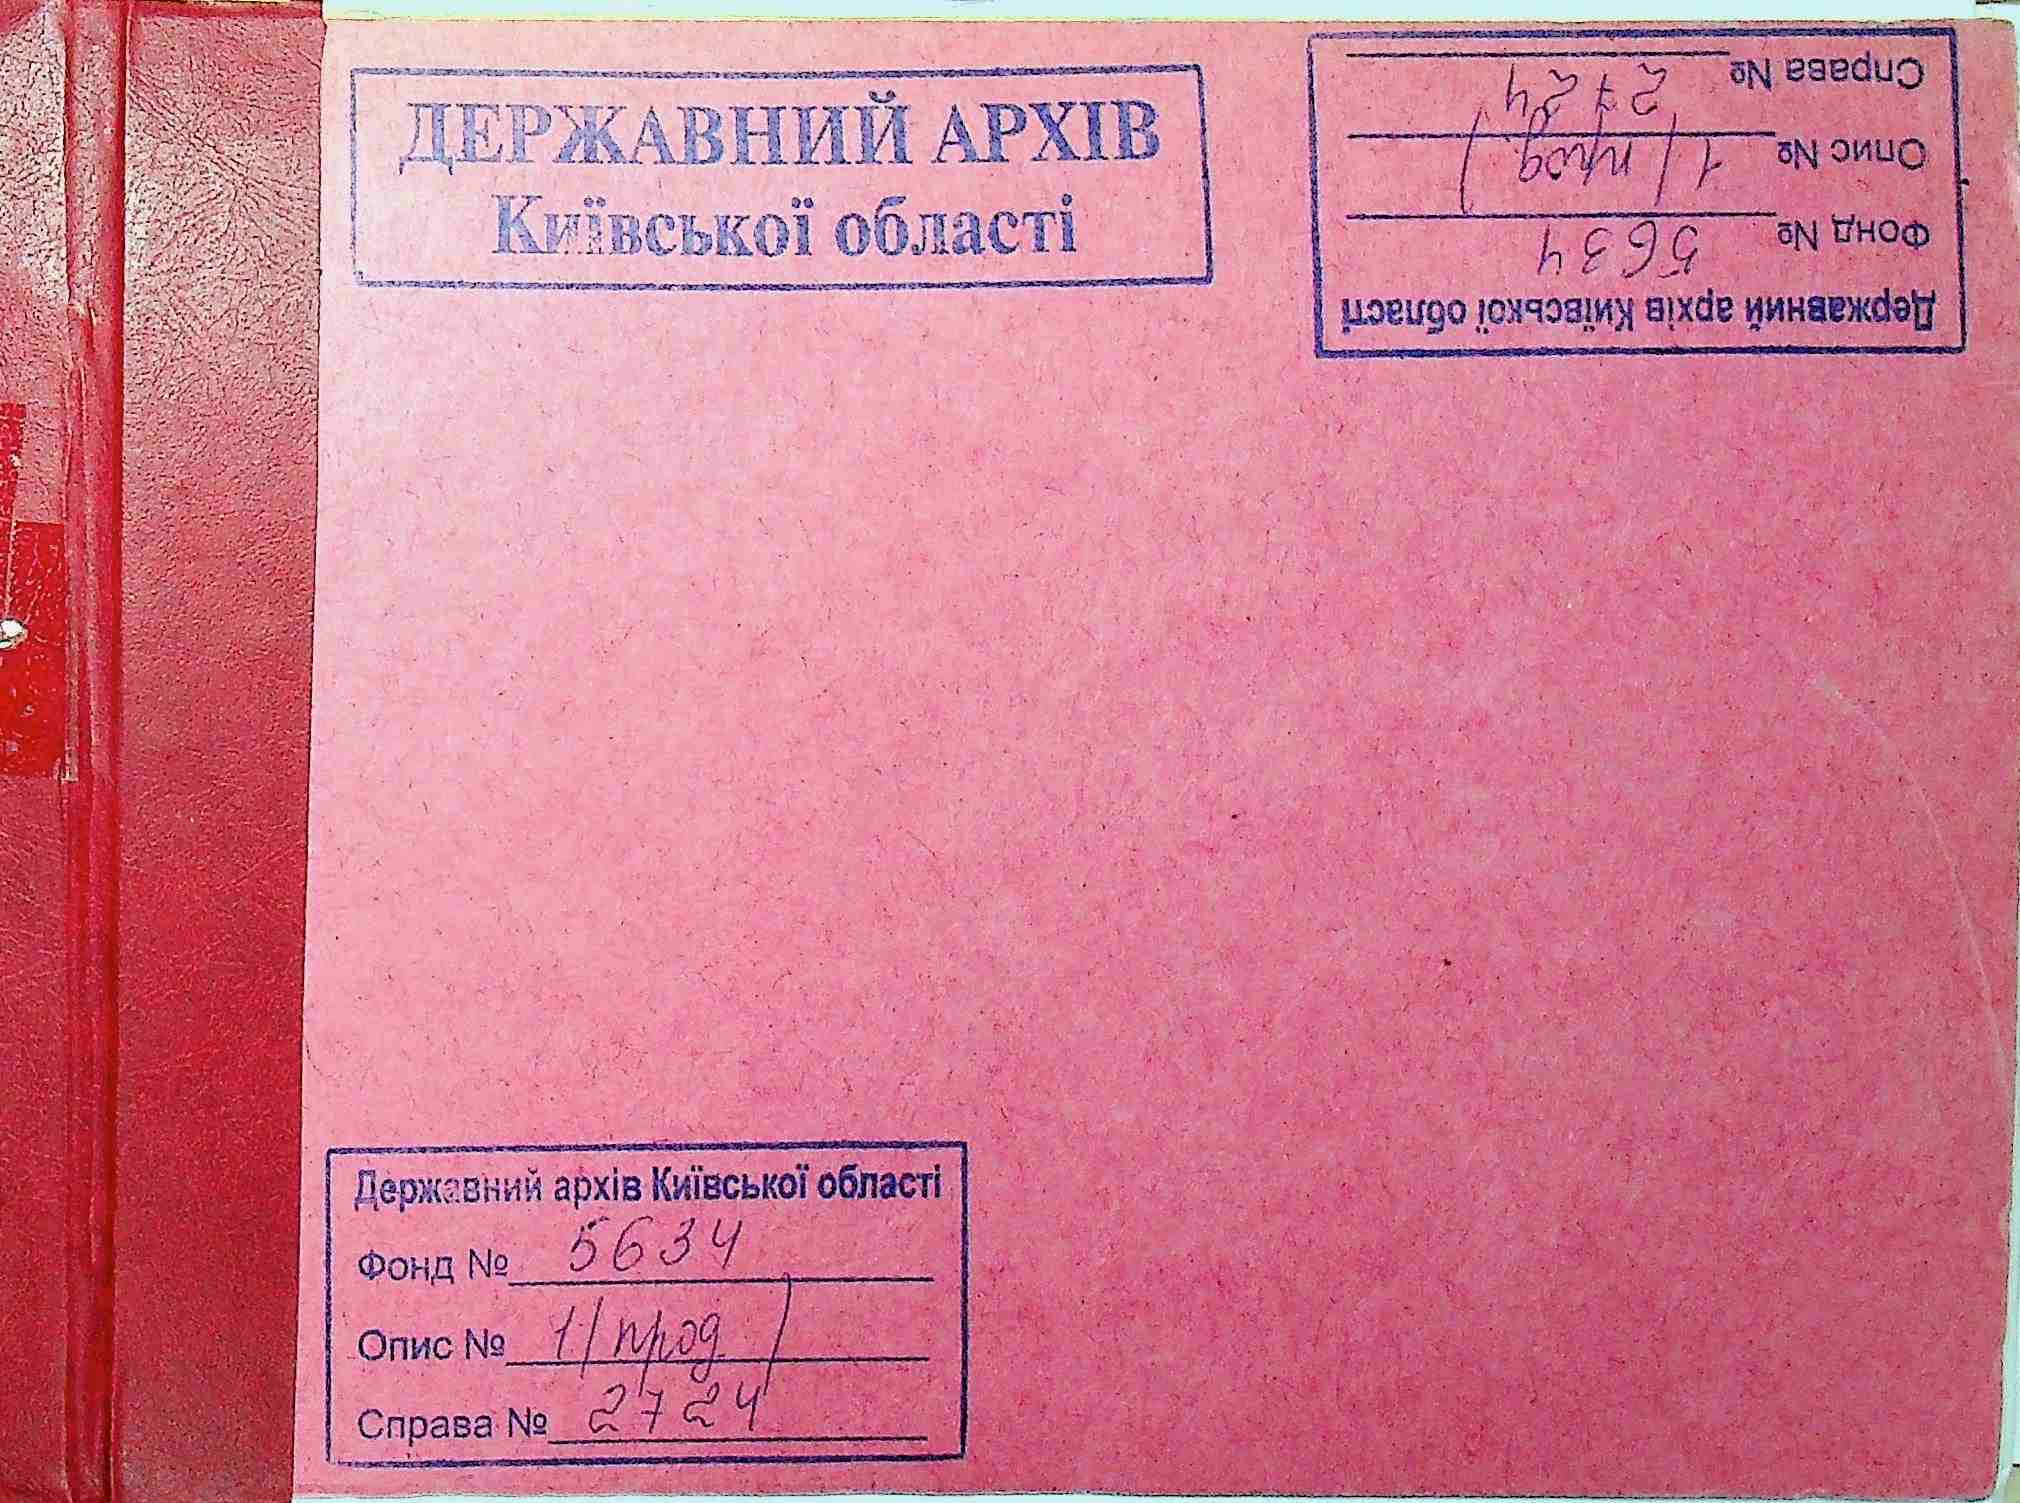 ДЕРЖАВНИЙ АРХІВ
Київської області
Державний архів Київської області
Фонд № 5634
Опис № 1 /прод/
Справа № 2724
Державний архів Київської області
Фонд № 5634
Опис № 1 /прод/
Справа № 2724